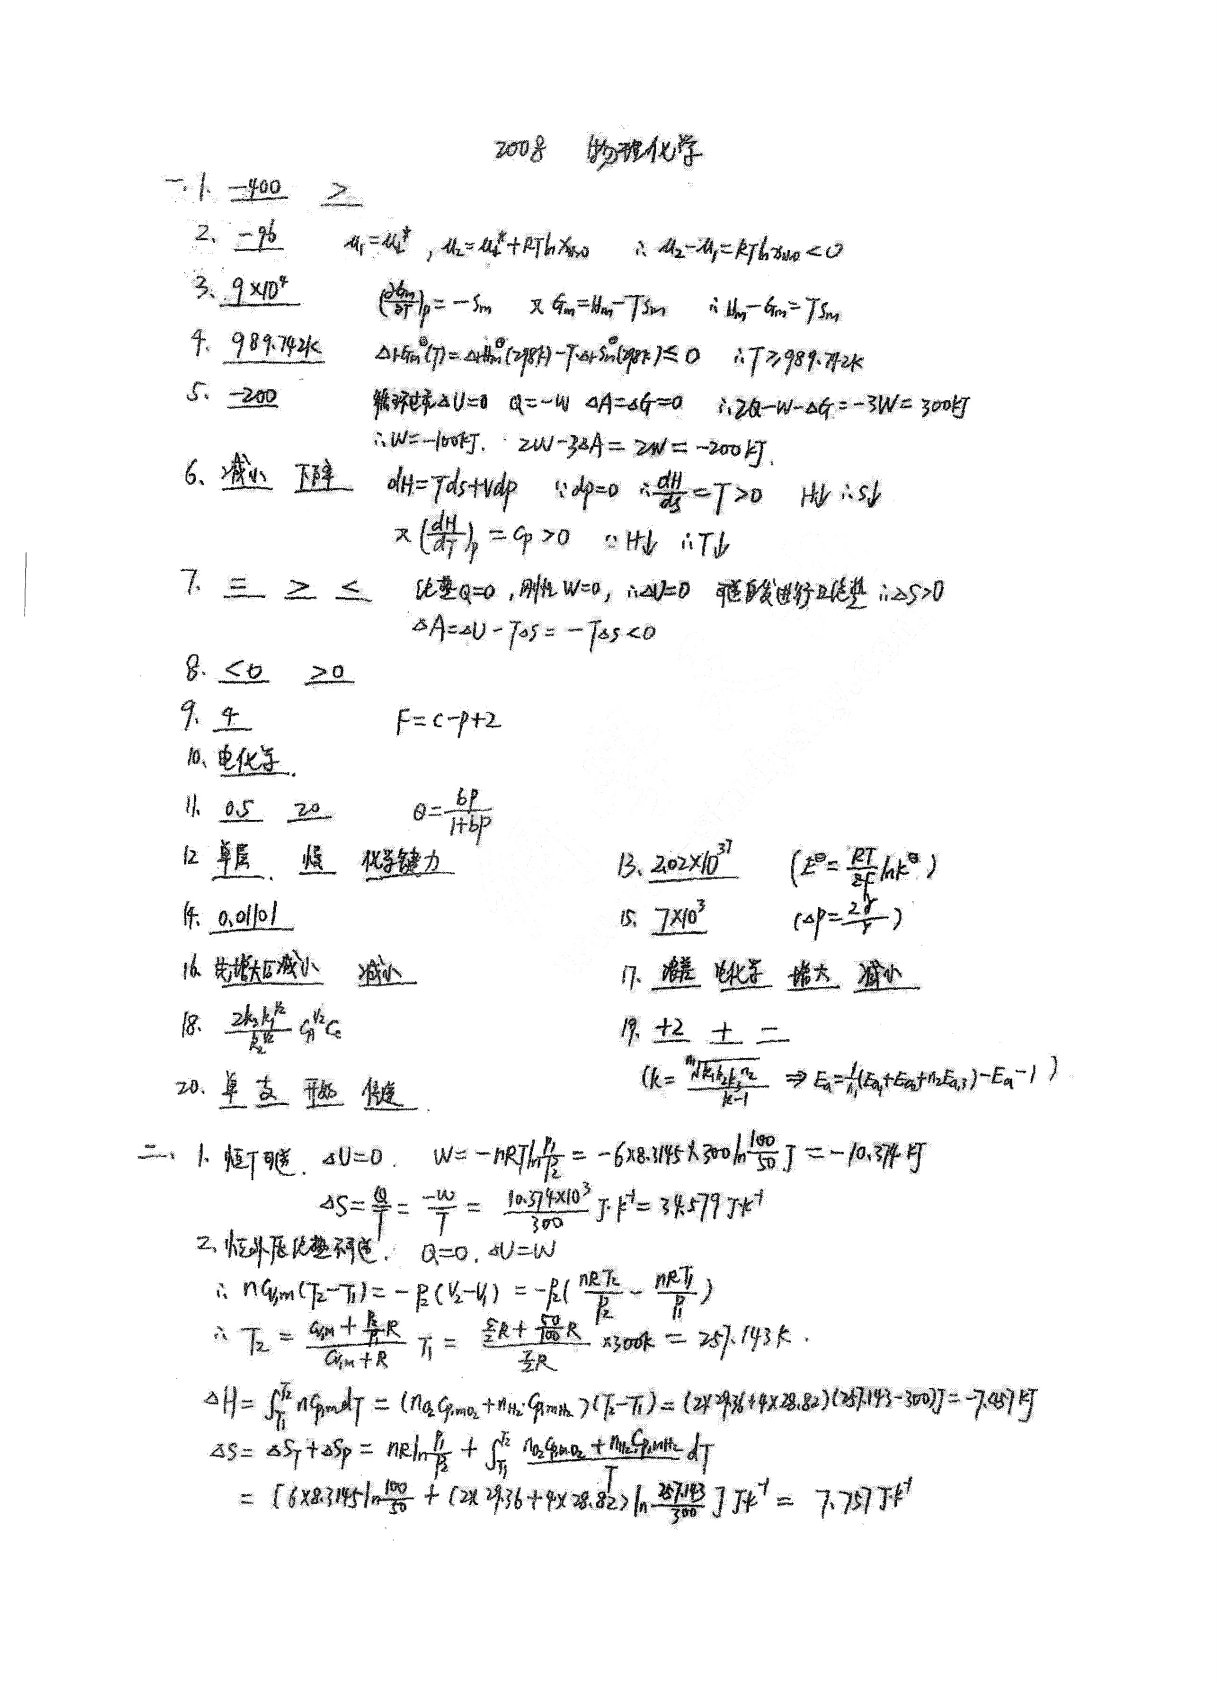 2008 物理化学
一.1. -400 >
2. -96 μ₁=μ₁*, μ₂=μ₁*+RTlnx ∴ μ₂-μ₁=RTlnx<0
3. 9×10⁴ (∂Gm/∂T)p=-Sm 又 Gm=Hm-TSm ∴ Hm-Gm=TSm
4. 989.742K ΔrGm^θ(T)=ΔrHm^θ(298K)-T·ΔrSm^θ(298K)≤0 ∴T≥989.742K
5. -200 循环过程ΔU=0 Q=-W ΔA=ΔG=0 ∴2Q-W-ΔG=-3W=300kJ
∴W=-100kJ. 2W-3ΔA=2W=-200kJ.
6、减小 下降 dH=Tds+Vdp ∵dp=0 ∴dH/ds=T>0 H↓ ∴S↓
又(dH/dT)p=Cp>0 ∵H↓ ∴T↓
7. = > < 绝热Q=0,刚性W=0,∴ΔU=0 自发进行且绝热 ∴ΔS>0
ΔA=ΔU-TΔS=-TΔS<0
8. <0 >0
9. 4 F=C-P+2
10、电化学.
11. 0.5 20 θ=bp/(1+bp)
12 单层. 慢 化学键力 13. 2.02×10³⁷ (E^θ=RT/zF lnK^θ)
14. 0.01101 15. 7×10³ (Δp=2γ/r)
16. 先增大后减小 减小 17. 浓差 电化学 增大 减小
18. 2k₃k₁^1/2/k₂^1/2 C_A^1/2 C_c 19. +2 + 二
20. 单 支 开始 传递
二、1. 恒T可逆. ΔU=0. W=-nRTln p₁/p₂=-6×8.3145×300ln 100/50 J=-10.374kJ
ΔS=Q/T=-W/T=10.374×10³/300 J·K⁻¹=34.579J·K⁻¹
2、恒外压绝热不可逆. Q=0. ΔU=W
∴ nCv,m(T₂-T₁)=-p₂(V₂-V₁)=-p₂(nRT₂/p₂-nRT₁/p₁)
∴ T₂=(Cv,m+p₂/p₁R)/(Cv,m+R) T₁=(5/2R+50/100R)/(7/2R) ×300K=257.143K.
ΔH=∫T₁^T₂ nCp,mdT=(nO₂Cp,mO₂+nH₂·Cp,mH₂)(T₂-T₁)=(2×29.36+4×28.82)(257.143-300)J=-7.457kJ
ΔS=ΔS_T+ΔS_p=nRln p₁/p₂+∫T₁^T₂ (nO₂Cp,mO₂+nH₂Cp,mH₂)/T dT
=[6×8.3145ln 100/50+(2×29.36+4×28.82)ln 257.143/300]J·K⁻¹=7.757J·K⁻¹